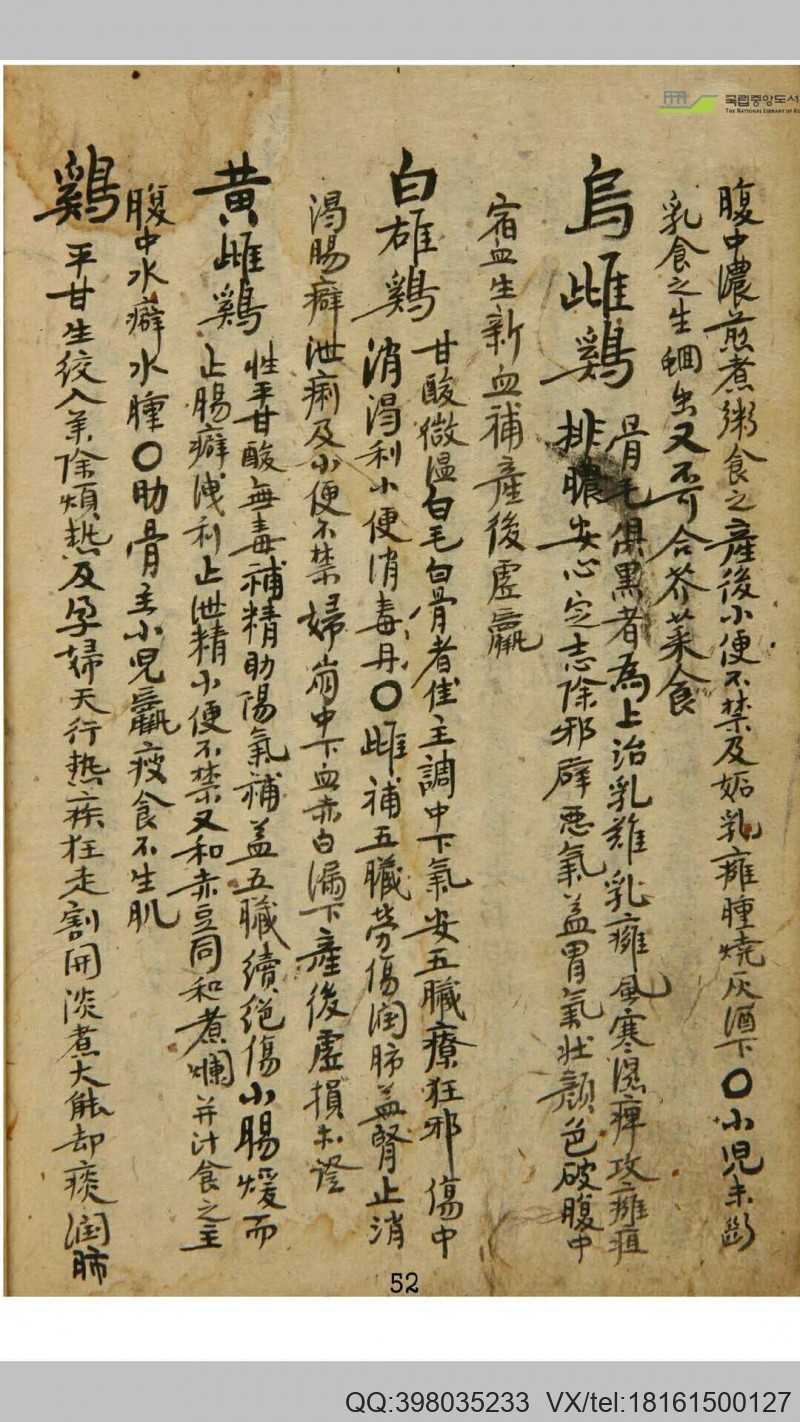 국립중앙도서
THE NATIONAL LIBRARY OF KO
腹中濃煎煮粥食之產後小便不禁及妬乳癰腫燒灰酒下〇小児未斷
乳食之生蛔虫又不可合芥菜食
烏雌鷄 骨毛俱黑者為上治乳難乳癰風寒濕痺攻癰疽
排膿安心定志除邪辟惡氣益胃氣壯顏色破腹中
宿血生新血補產後虛羸
白雄鷄 甘酸微溫白毛白骨者佳主調中下氣安五臟療狂邪傷中
消渴利小便消毒丹〇雌補五臟勞傷潤肺益腎止消
渴腸癖泄痢及小便不禁婦崩中下血赤白漏下產後虛損
黃雌鷄 性平甘酸無毒補精助陽氣補益五臟續絕傷小腸煖而
止腸癖洩利止泄精小便不禁又和赤豆同和煮爛并汁食之主
腹中水癖水腫〇肋骨主小児羸瘦食不生肌
鷄 平甘生絞入藥除煩热及孕婦天行热疾狂走割開淡煮大能却痰潤肺
52
QQ:398035233 VX/tel:18161500127